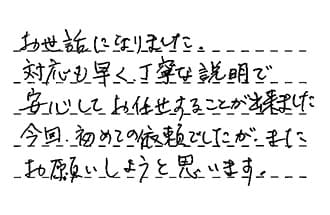 お世話になりました。
対応も早く、丁寧な説明で
安心してお任せすることが出来ました
今回、初めての依頼でしたが、また
お願いしようと思います。